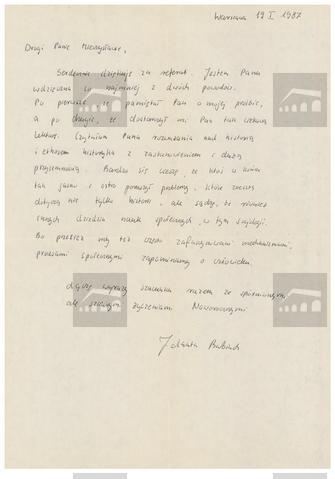 Warszawa 19 I 1987
Drogi Panie Mieczysławie,
Serdecznie dziękuję za referat. Jestem Panu
wdzięczna co najmniej z dwóch powodów.
Po pierwsze, że pamiętał Pan o mojej prośbie,
a po drugie, że dostarczył mi Pan tak ciekawą
lekturę. Czytałam Pana rozważania nad historią
i etosem historyka z zastanowieniem i dużą
przyjemnością. Bardzo się cieszę, że ktoś w końcu
tak jasno i ostro poruszył problemy, które zresztą
dotyczą nie tylko historii, ale sądzę, że również
innych dziedzin nauk społecznych, w tym socjologii.
Bo przecież my też często zafascynowani mechanizmami,
procesami społecznymi zapominamy o człowieku.
Łączę wyrazy szacunku razem ze spóźnionymi
ale szczerymi życzeniami Noworocznymi
Jolanta